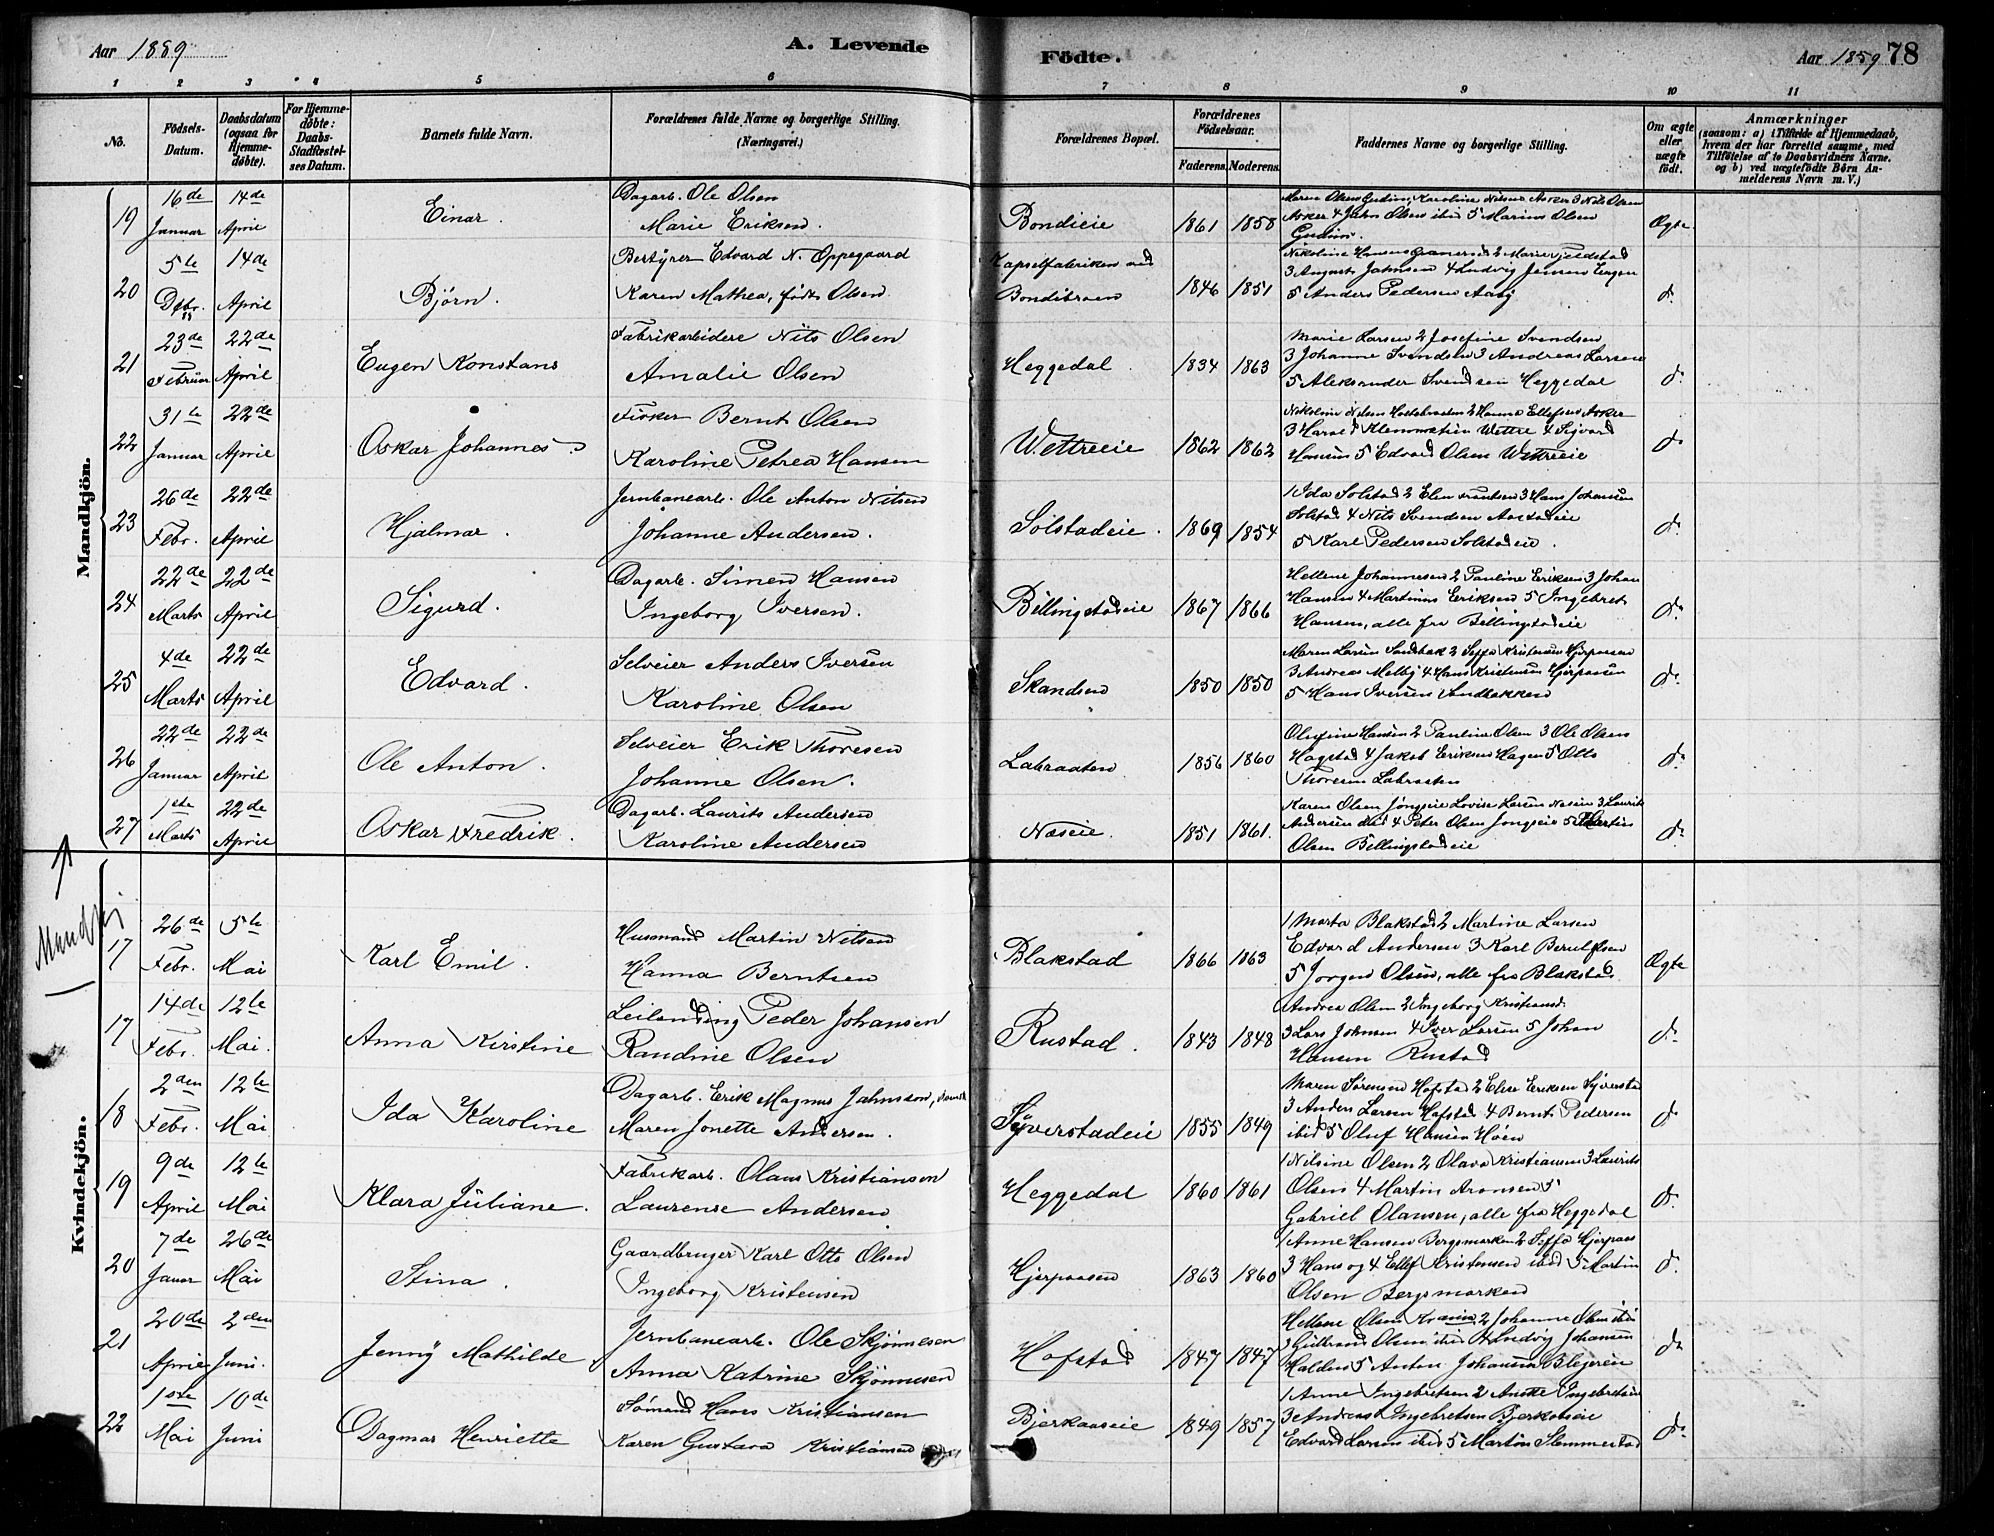 Aar 1889
A. Levende
Födte.
Aar 1889
78
1 2 3 4 5 6 7 8 9 10 11
No.
Födsels-Datum.
Daabsdatum (ogsaa for Hjemme-döbte).
For Hjemme-döbte: Daabs-Stadfæstel-ses Datum.
Barnets fulde Navn.
Forældrenes fulde Navne og borgerlige Stilling. (Næringsvei.)
Forældrenes Bopæl.
Forældrenes Födselsaar.
Faderens. Moderens.
Faddernes Navne og borgerlige Stilling.
Om ægte eller uægte födt.
Anmærkninger
(saasom: a) i Tilfælde af Hjemmedaab, hvem der har forrettet samme, med Tilföielse af to Daabsvidners Navne. og b) ved uægtefödte Börn An-melderens Navn m.V.)
Mandkjön.
19 16de Januar 14de April Einar. Dagarb. Ole Olsen
Marie Eriksen. Bondieie 1861 1858 Ægte
Asker 4 John Olsen ibid 5 Marius Olsen
20 5te Debr. 14de April Björn. Bestyrer Edvard N. Oppegaard
Karen Mathea, födt Olsen Kapselfabriken ved Bondibroen 1846 1851 do
3 August Jahnsen 4 Ludvig Jensen
5 Anders Pedersen Aaby
21 23de Februar 22de April Eugen Konstans Fabrikarbeidere Nils Olsen
Amalie Olsen Heggedal 1834 1863 do
Marie Larsen 2 Josefine Svendsen
3 Johanne Svendsen 3 Andreas Larsen
5 Aleksander Svendsen Heggedal
22 31te Januar 22de April Oskar Johannes Fisker Bernt Olsen
Karoline Petrea Hansen Wettreeie 1862 1862 do
Hansen 5 Edvard Olsen Wettreeie
23 26de Febr. 22de April Hjalmar. Jernbanearb. Ole Anton Nilsen
Johanne Andersen. Solstadeie. 1869 1854 do
1 Ida Solstad 2 Elen Frantsen 3 Hans Johansen
Solstad 4 Nils Svendsen
5 Karl Pedersen Solstadeie.
24 22de Marts 22de April Sigurd. Dagarb. Simen Hansen
Ingeborg Iversen. Billingstadeie 1867 1866 do
Hellene Johannesen 2 Pauline Eriksen 3 Johan
Hansen 4 Martinus Eriksen 5 Ingebret
Hansen, alle fra Billingstadeie
25 4de Marts 22de April Edvard. Selveier Anders Iversen
Karoline Olsen Skandsen 1850 1850 do
3 Andreas Melby 4 Hans Kristensen Hjerpaasen
5 Hans Iversen Sandbakken
26 22de Januar 22de April Ole Anton. Selveier Erik Thoresen
Johanne Olsen. Labraaten 1856 1860 do
Olufine Hansen 2 Pauline Olsen 3 Ole Olsen
Hogstad 4 Jakob Eriksen Hagen 5 Otto
Thoresen Labraaten
27 1ste Marts 22de April Oskar Fredrik. Dagarb. Laurits Andersen
Karoline Andersen Næseie. 1851 1861. do
Karen Olsen Jongseie Lovise Larsen Næseie 3 Laurits
Andersen ibid 4 Peter Olsen Jongseie 5 Martin
Olsen Billingstadeie
Mandkj
Kvindekjön.
17 26de Febr. 5te Mai Karl Emil. Husmand Martin Nilsen
Hanna Berntsen Blakstad 1866 1863 Ægte
1 Marta Blakstad 2 Martine Larsen
Edvard Andersen 3 Karl Berntsen
5 Jorgen Olsen, alle fra Blakstad
17 14de Febr. 12te Mai. Anna Kirstine Leilending Peder Johansen
Randine Olsen Rustad. 1843 1848 do
Andrea Olsen 2 Ingeborg Kristians.
3 Lars Johnsen 4 Iver Larsen 5 Johan
Hansen Rustad
18 2den Febr. 12te Mai Ida Karoline Dagarb. Erik Magnus Jahnson, svensk
Maren Jonette Andersen. Syverstadeie 1855 1849 do
Maren Sörensen Hofstad 2 Elise Eriksen Syverstad
3 Anders Larsen Hofstad 4 Bernt Pedersen
ibid 5 Oluf Hansen Höen
19 9de April 12te Mai Klara Juliane. Fabrikarb. Olaus Kristiansen
Laurense Andersen Heggedal 1860 1861 do
1 Nilsine Olsen 2 Olava Kristiansen 3 Laurits
Olsen 4 Martin Aronsen 5
Gabriel Olausen, alle fra Heggedal
20 7de Januar 26de Mai Stina. Gaardbruger Karl Otto Olsen
Ingeborg Kristensen Hjerpaasen 1863 1860 do
1 Anne Hansen Bergsmarken 2 Siffa Hjerpaas
3 Hans og 4 Ellef Kristensen ibid 5 Martin
Olsen Bergsmarken
21 20de April 2den Juni. Jenny Mathilde Jernbanearb. Ole Skjönnesen
Anna Katrine Skjönnesen Hofstad 1847 1847 do
3 Gulbrand Olsen ibid 4 Ludvig Johansen
22 1ste Mai 10de Juni Dagmar Henriette Sömand Hans Kristiansen
Karen Gustava Kristiansen Bjerkaaseie 1849 1857 do
1 Anne Ingebretsen 2 Anette Ingebretsen
3 Andreas Ingebretsen Bjerkaaseie
Edvard Larsen ibid 5 Martin Slemmestad